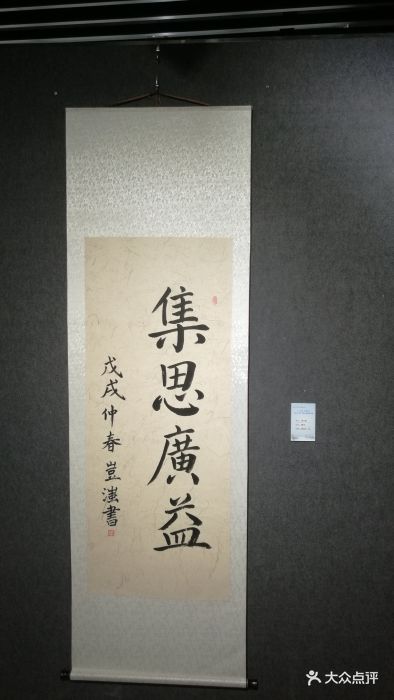 集思廣益
戊戌仲春豈滍書
大众点评